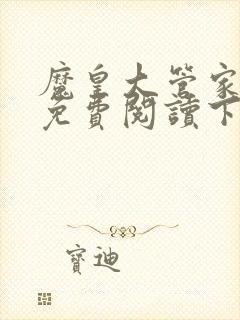 魔皇大管家
免費閱讀下
寶迪